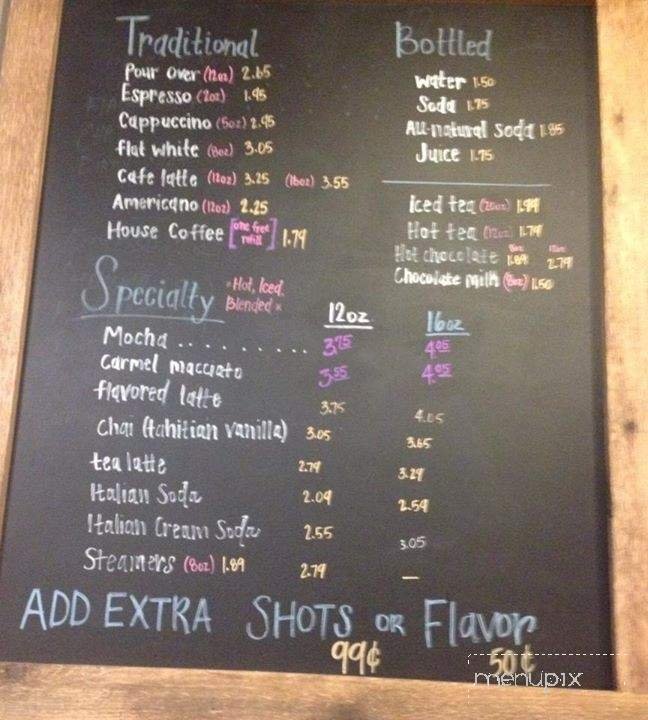 Traditional
Pour over (12oz) 2.65
Espresso (2oz) 1.95
Cappuccino (5oz) 2.95
flat white (8oz) 3.05
Cafe latte (12oz) 3.25 (16oz) 3.55
Americano (12oz) 2.25
House Coffee [one free refill] 1.79
Bottled
Water 1.50
Soda 1.75
All-natural Soda 1.85
Juice 1.75
Iced tea (20oz) 1.99
Hot tea (12oz) 1.79
8oz 12oz
Hot chocolate 1.89 2.79
Chocolate milk (8oz) 1.50
Specialty *Hot, Iced, Blended*
12oz 16oz
Mocha ......... 3.75 4.05
Carmel macciato 3.55 4.05
flavored latte 3.75 4.05
Chai (tahitian vanilla) 3.05 3.65
tea latte 2.79 3.29
Italian Soda 2.09 2.59
Italian Cream Soda 2.55 3.05
Steamers (8oz) 1.89 2.79 —
ADD EXTRA SHOTS OR Flavor
99¢ 50¢
menupix